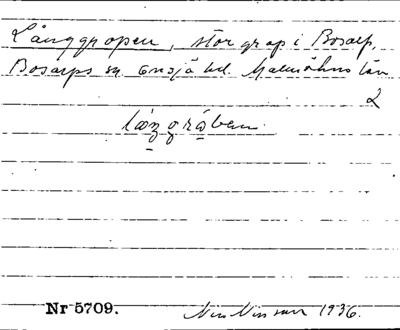 Långgropen, stor grop i Bosarp,
Bosarps sn. Onsjö hd. Malmöhus län
2
Nr 5709. Nils Nilsson 1936.